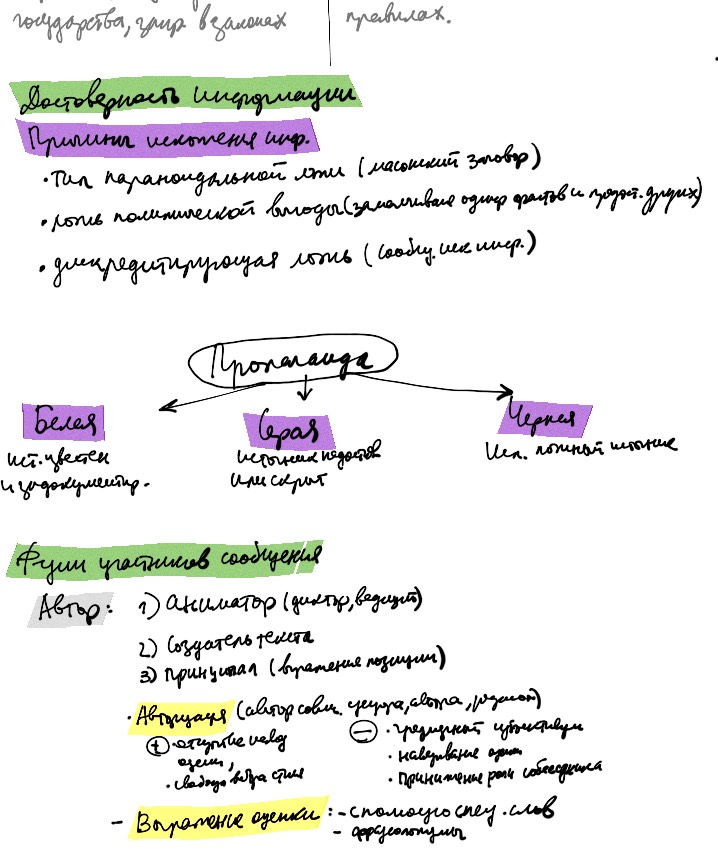 государства, в законах
правилах.
Достоверность информации
Причины искажения инф.
• Тип параноидальной лжи (масонский заговор)
• ложь политической выгоды (замалчивание одних фактов и других)
• дискредитирующая ложь (сообщ. иск инф.)
Пропаганда
Белая
Серая
Черная
ист. известен
и задокументир.
источник недостов
или скрыт
Исп. ложный источник
Фции участников сообщения
Автор:
1) аниматор (диктор, ведущий)
2) Создатель текста
3) принципал (выражение позиции)
• Авторизация (автор совм.
+ • отсутствие
оценки,
• свобода выбора стиля
– •
• навязывание
• принижение роли собеседника
– Выражение оценки: – с помощью спец. слов
– фразеологизмы